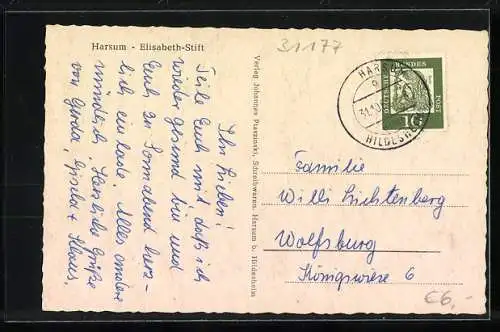 Harsum - Elisabeth-Stift
31177
Ihr Lieben!
Teile Euch mit daß ich
wieder gesund bin und
Euch zu Sonnabend herz-
lich einlade. Alles andere
mündlich. Herzliche Grüße
von Gerda, Gischa + Klaus.
Verlag Johannes Plaszinski, Schreibwaren, Harsum b. Hildesheim
HAR
31.10
HILDESH
DEUTSCHE BUNDES
POST
10
Familie
Willi Lichtenberg
Wolfsburg
Königswiese 6
€6,-